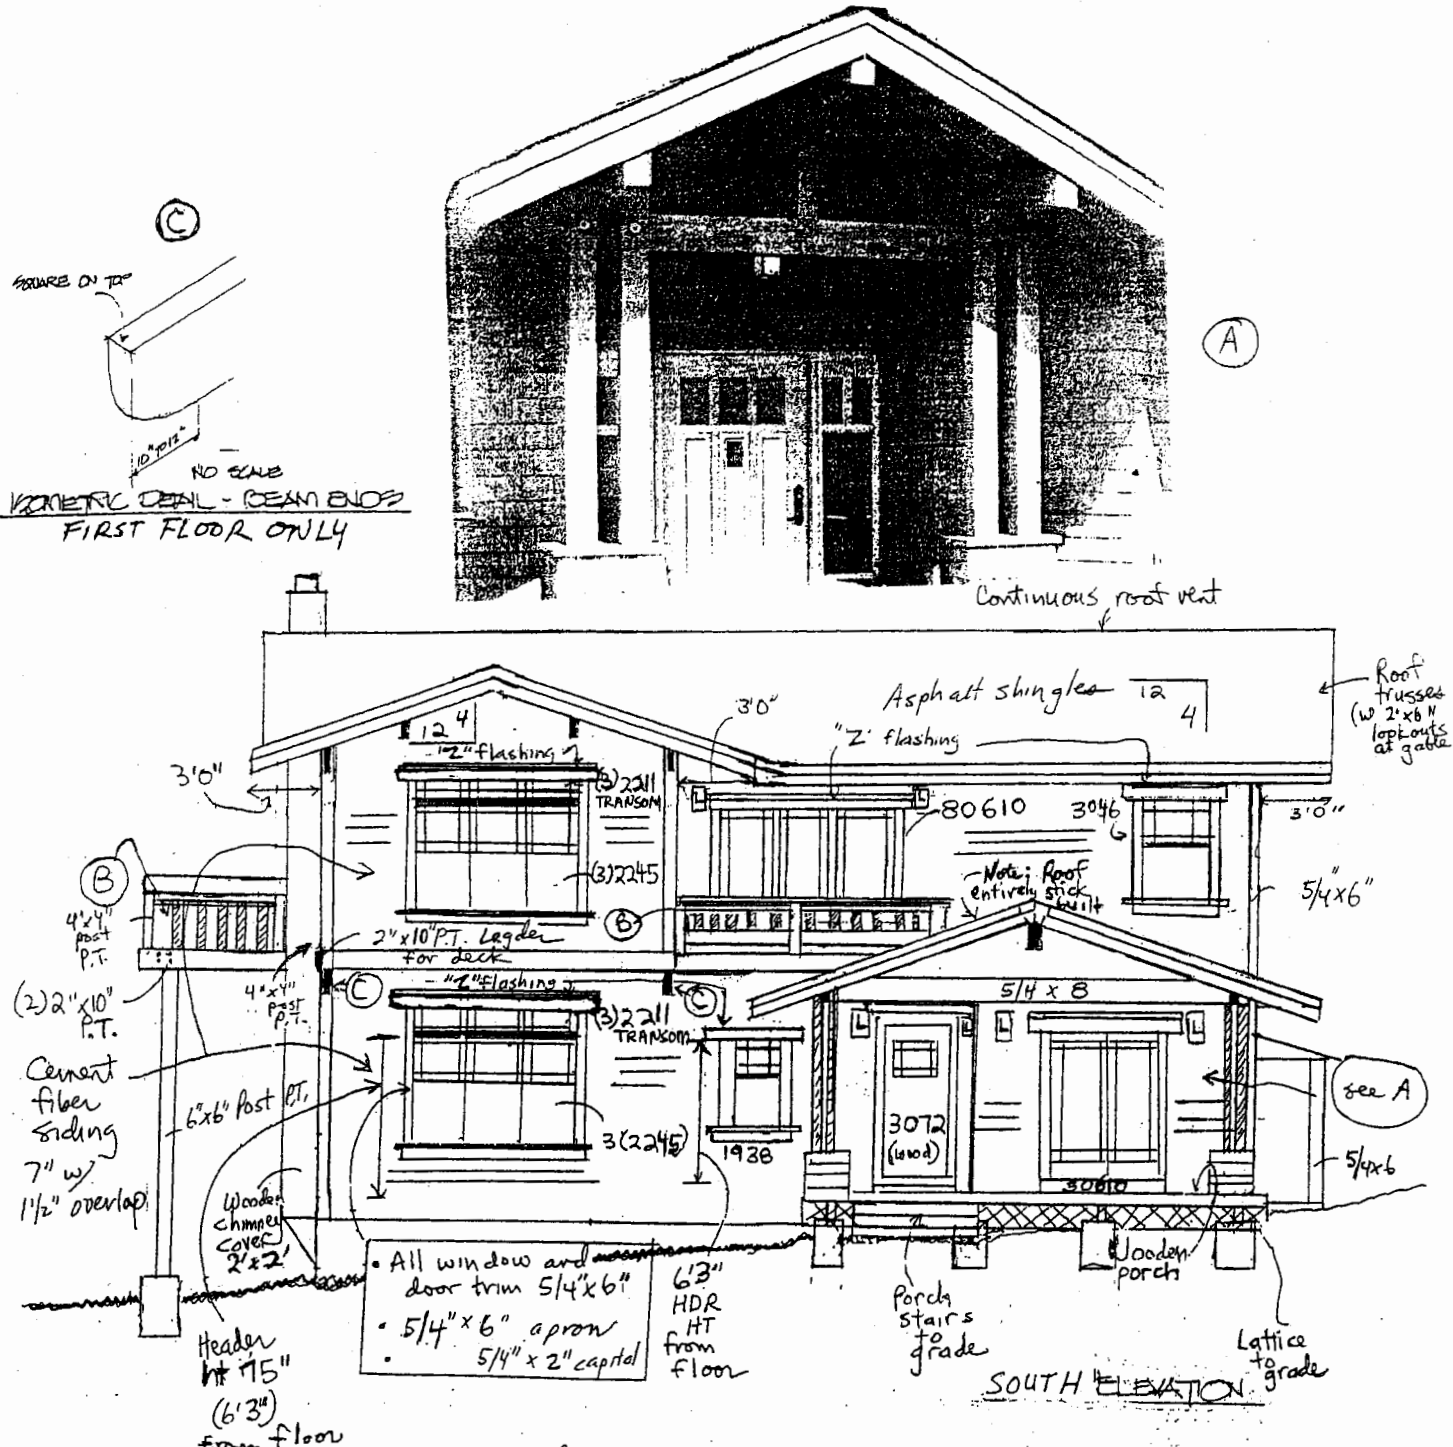 C
SQUARE ON TOP
10" TO 12"
NO SCALE
ISOMETRIC DETAIL - BEAM ENDS
FIRST FLOOR ONLY
A
Continuous roof vent
Asphalt shingles
12
4
Roof
trusses
(w 2"x6"
lookouts
at gable
12
4
"Z" flashing
3'0"
"Z" flashing
3'0"
(3)2211
TRANSOM
L
L
80610
3046
3'0"
B
(3)2245
Note: Roof
entirely stick
built
5/4"x6"
4"x4"
post
P.T.
B
2"x10" P.T. Ledger
for deck
(2) 2"x10"
P.T.
4"x4"
post
P.T.
C
"Z" flashing
C
5/4 x 8
(3)2211
TRANSOM
L
L
L
L
Cement
fiber
siding
7" w/
1 1/2" overlap
6"x6" Post P.T.
see A
3072
(wood)
3(2245)
1938
30610
5/4x6
Wooden
chimney
cover
2'x2'
• All window and
door trim 5/4"x6"
• 5/4"x6" apron
• 5/4"x2" capital
6'3"
HDR
HT
from
floor
Porch
stairs
to
grade
Wooden
porch
Lattice
to
grade
Header
ht 75"
(6'3")
from floor
SOUTH ELEVATION